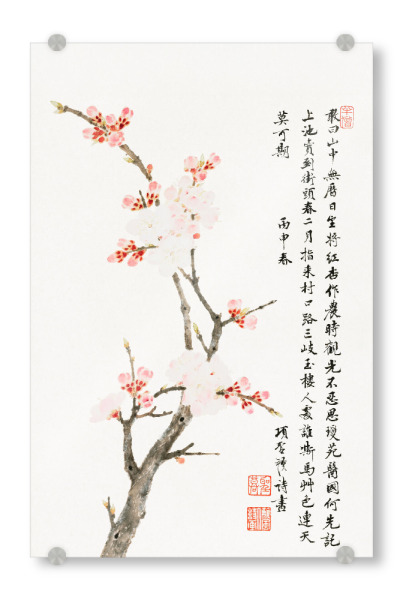 敢曰山中無曆日坐將紅杏作農時觀光不忍思瓊苑醫國何先記
上池賣到街頭春二月指來村口路三岐玉樓人裏誰嘶馬艸色連天
莫可期
丙申春
項 詩書